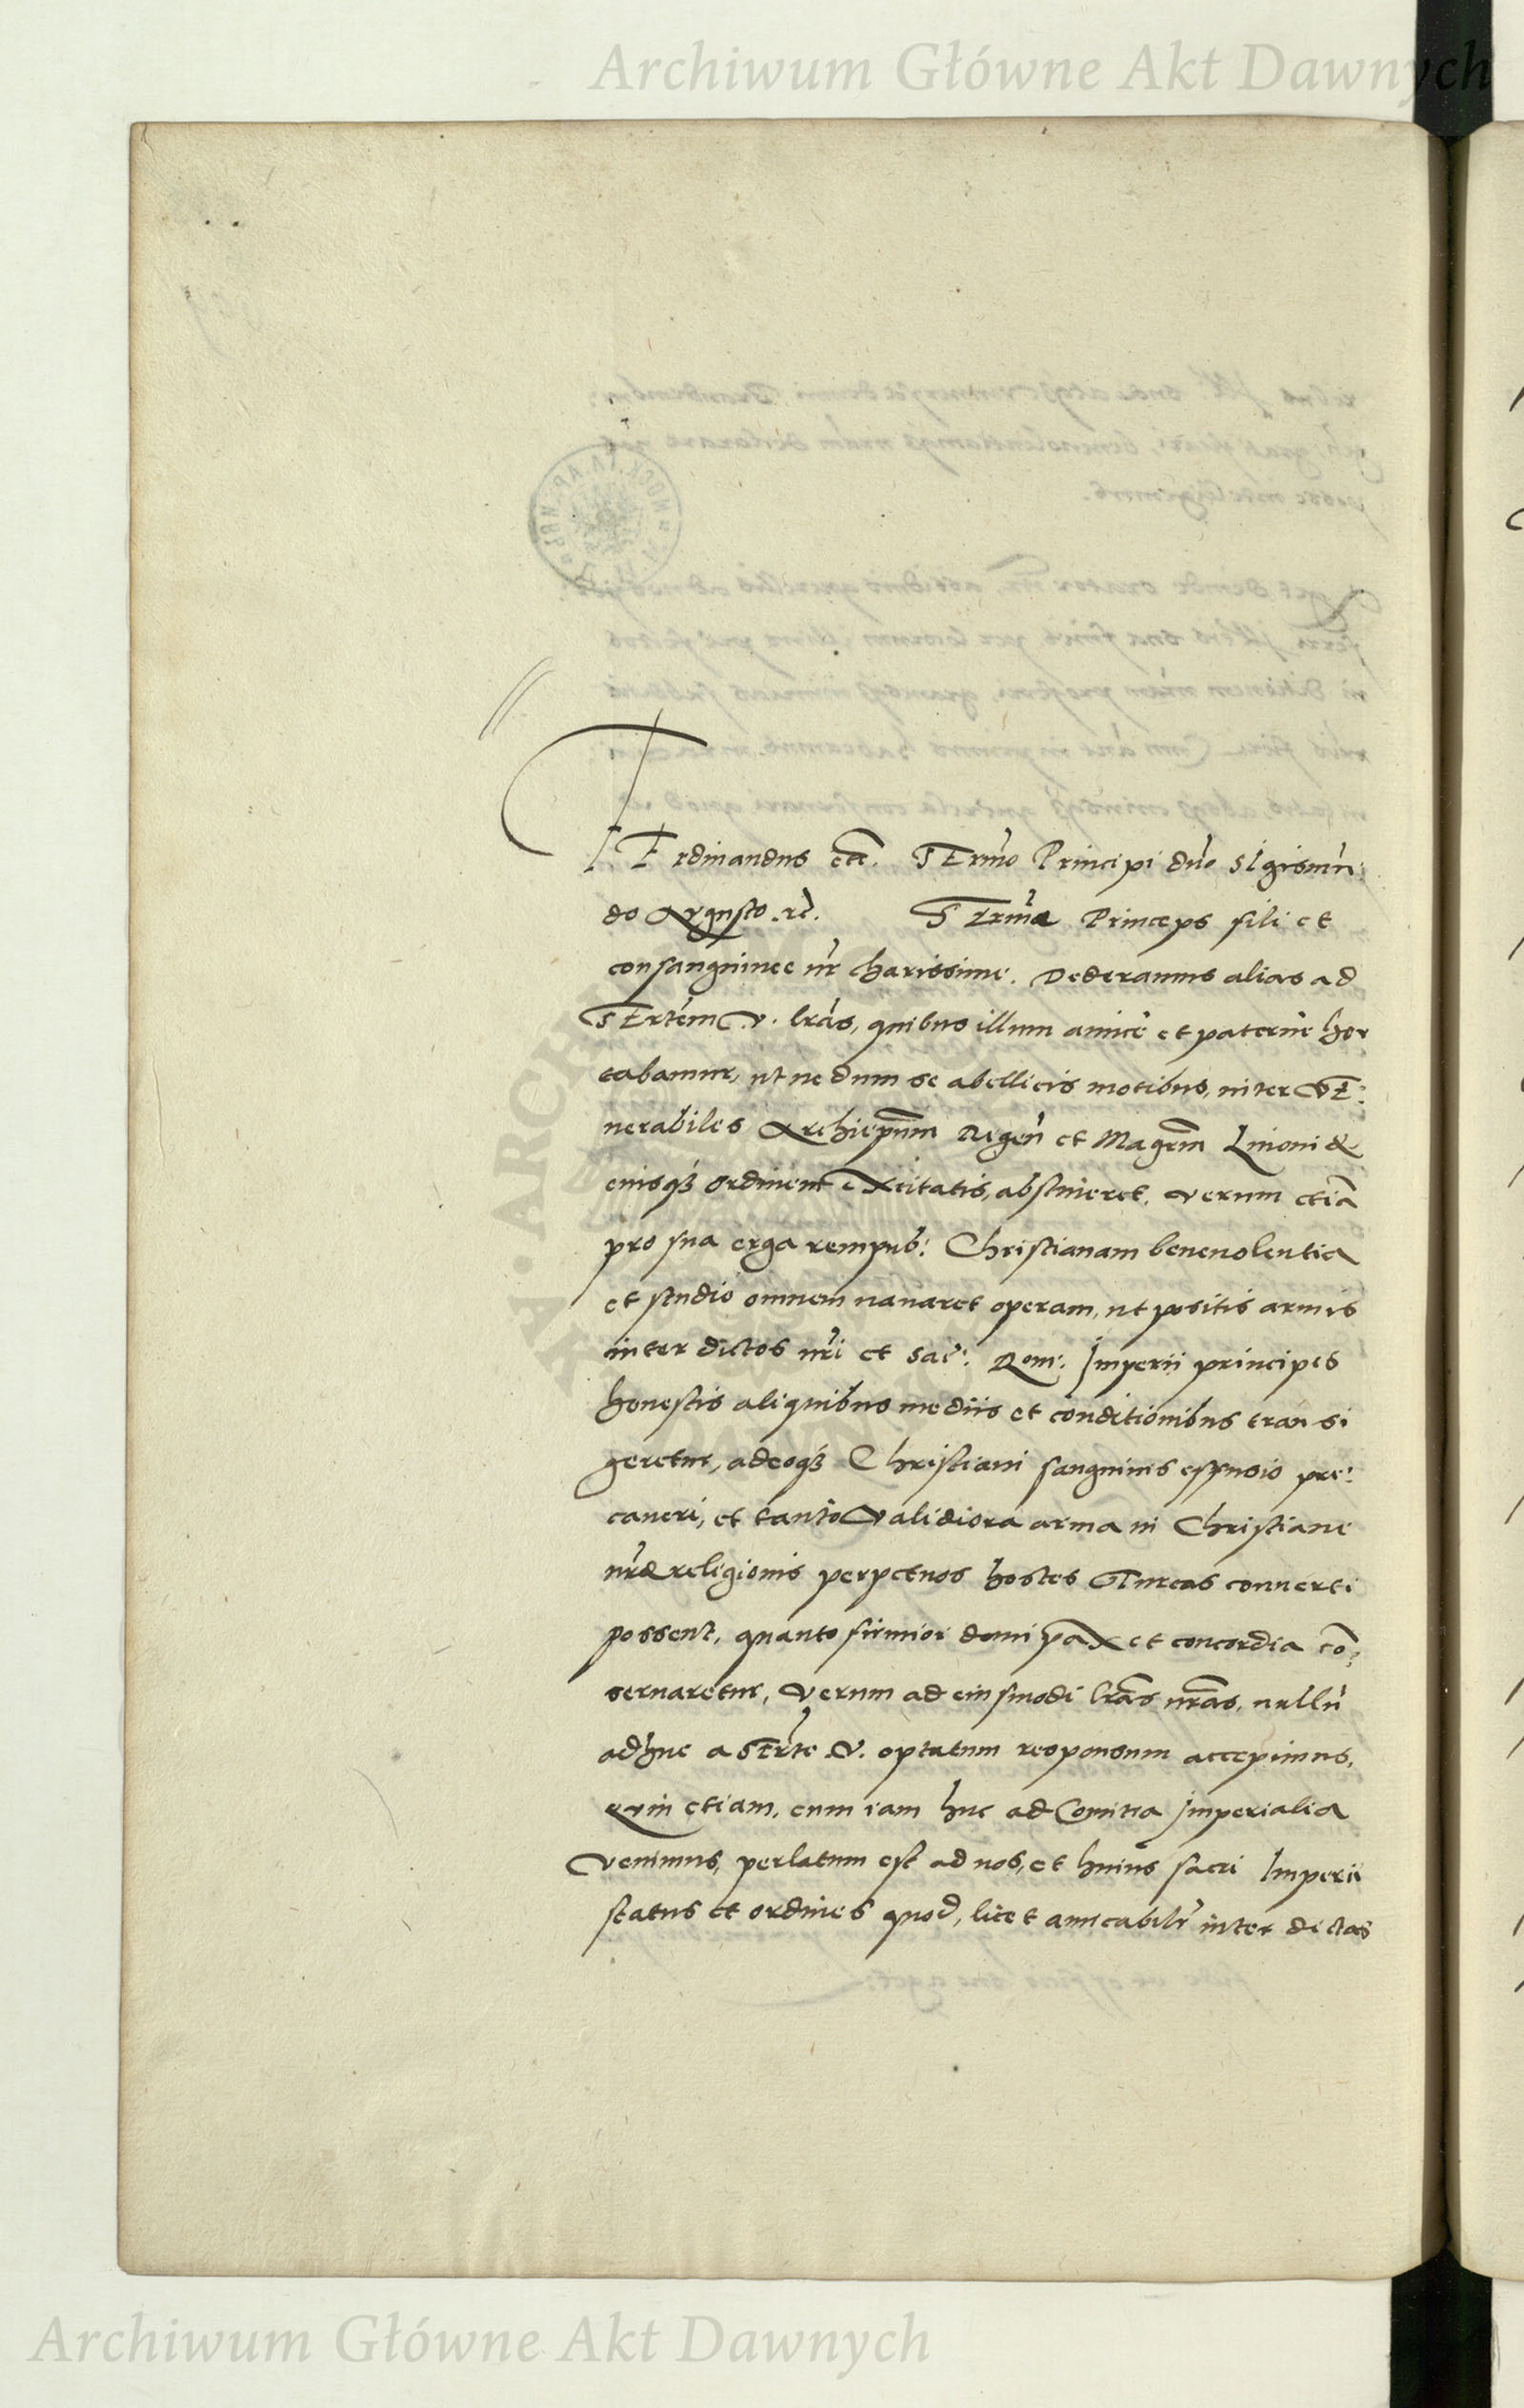 Archiwum Główne Akt Dawnych
FErdinandus etc. SErmo Principi dno Sigismun:
do Augusto. rc. SErme Princeps fili et
consanguinee nr charissime. Dederamus alias ad
SErtem V. lras, quibus illum amice et paterne hor
tabamur, ut nedum se a bellicis motibus, inter VE:
nerabiles Archiepum Rigen et Magrm Livoniæ
eiusq ordinem excitatis, abstineret. verum etia
pro sua erga rempub: Christianam benevolentia
et studio omnem navaret operam, ut positis armis
inter dictos nri et Sac: Rom: Imperii principes
honestis aliquibus mediis et conditionibus transi
geretur, adeoq Christiani sanguinis effusio pre:
caveri, et tanto validiora arma in Christiane
nræ religionis perpetuos hostes Turcas converti
possent, quanto firmior domi pax et concordia co:
servaretur, Verum ad eiusmodi lras nras, nullu
adhuc a SErte V. optatum responsum accepimus,
quin etiam, cum iam huc ad Comitia Imperialia
venimus, perlatum est ad nos, et huius sacri Imperii
status et ordines quod, licet amicabilr inter dictos
Archiwum Główne Akt Dawnych